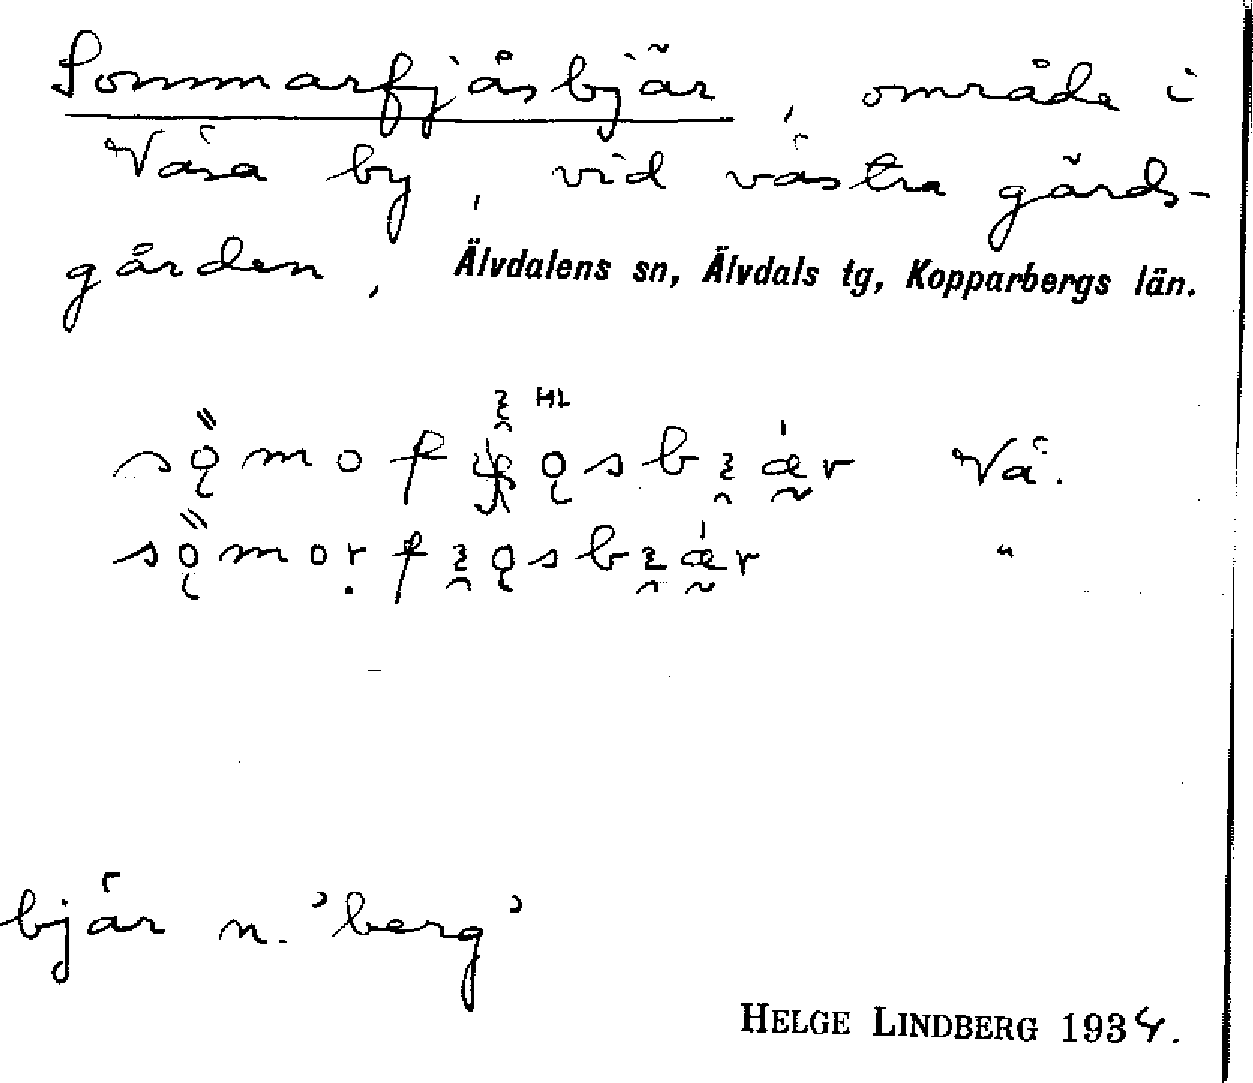 Sommarfjåsbjär, område i
Väsa by, vid västra gärds-
gården, Älvdalens sn, Älvdals tg, Kopparbergs län.
HL
Vä.
"
bjär n. 'berg'
HELGE LINDBERG 1934.